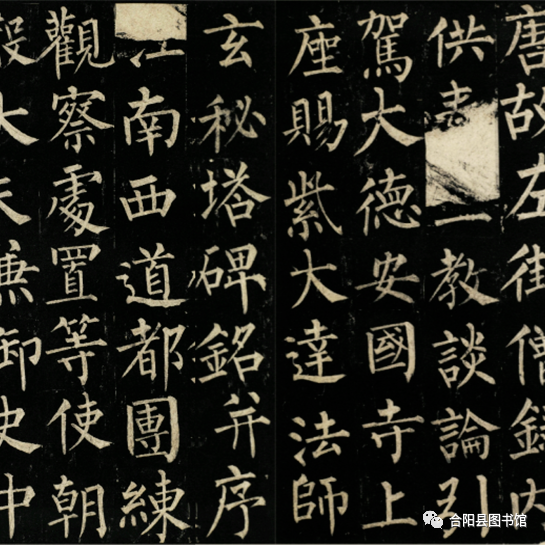 唐故左街僧録内
供奉教談論引
駕大德安國寺上
座賜紫大達法師
玄秘塔碑銘并序
南西道都團練
觀察處置等使朝
散大夫兼御史中
合阳县图书馆